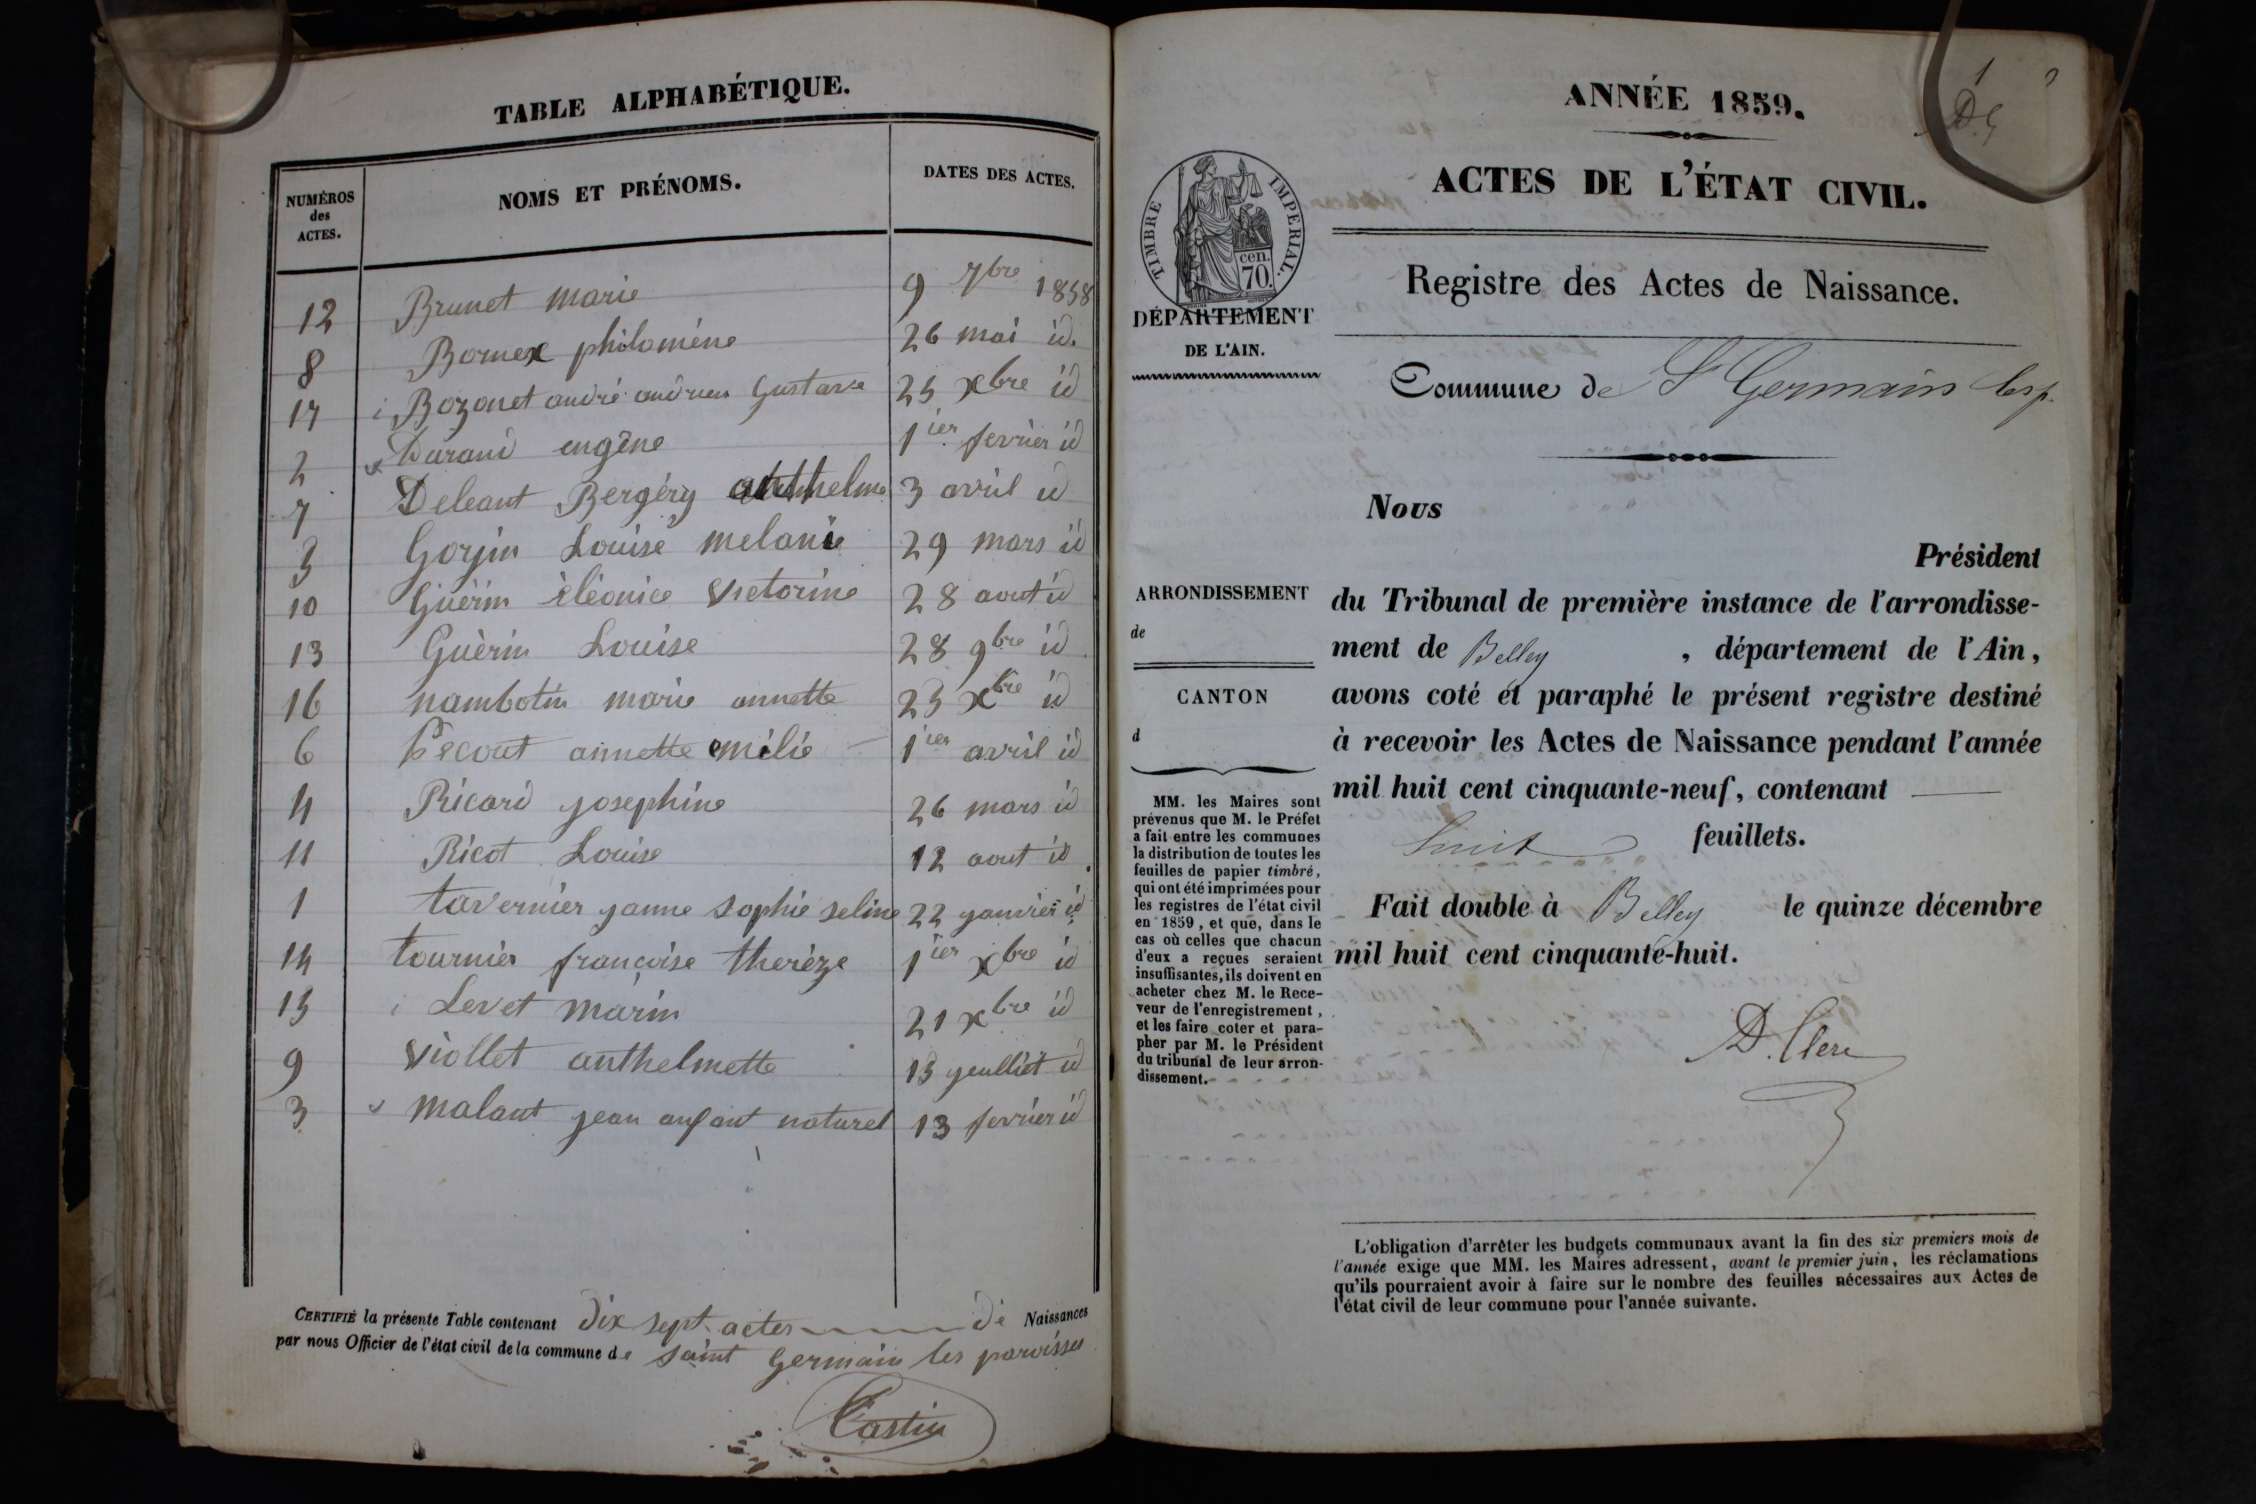 TABLE ALPHABÉTIQUE.
NUMÉROS des ACTES. NOMS ET PRÉNOMS. DATES DES ACTES.
12 Brunet marie 9 7bre 1858
8 Bornex philomène 26 mai id.
17 Bozonet andré andrien Gustave 25 xbre id
2 Durand eugène 1ier fevrier id
7 Deleaut Bergéry anthhelme 3 avril id
3 Gorjin Louise melanie 29 mars id
10 Guèrin èléonice victorine 28 aout id
13 Guèrin Louise 28 9bre id
16 nambotin marie annette 23 xbre id
6 Pècout annette emilie 1ier avril id
4 Ricard josephine 26 mars id
11 Ricot Louise 12 aout id
1 tavernier janne sophie seline 22 janvier id
14 tournier françoise therèze 1ier xbre id
15 Levet marin 21 xbre id
9 viollet anthelmette 13 jeulliet id
3 malaut jean anfant naturel 13 fevrier id
CERTIFIÉ la présente Table contenant dix sept actes de Naissances
par nous Officier de l'état civil de la commune de saint germain les paroisses
Castin
1
D.C
ANNÉE 1859.
ACTES DE L'ÉTAT CIVIL.
TIMBRE IMPERIAL.
cen.
70.
Registre des Actes de Naissance.
DÉPARTEMENT
DE L'AIN.
Commune de St Germain lesp.
Nous
Président
ARRONDISSEMENT
de
CANTON
d
du Tribunal de première instance de l'arrondisse-
ment de Belley , département de l'Ain,
avons coté et paraphé le présent registre destiné
à recevoir les Actes de Naissance pendant l'année
mil huit cent cinquante-neuf, contenant
huit feuillets.
Fait double à Belley le quinze décembre
mil huit cent cinquante-huit.
D. Clerc
MM. les Maires sont
prévenus que M. le Préfet
a fait entre les communes
la distribution de toutes les
feuilles de papier timbré,
qui ont été imprimées pour
les registres de l'état civil
en 1859, et que, dans le
cas où celles que chacun
d'eux a reçues seraient
insuffisantes, ils doivent en
acheter chez M. le Rece-
veur de l'enregistrement,
et les faire coter et para-
pher par M. le Président
du tribunal de leur arron-
dissement.
L'obligation d'arrêter les budgets communaux avant la fin des six premiers mois de
l'année exige que MM. les Maires adressent, avant le premier juin, les réclamations
qu'ils pourraient avoir à faire sur le nombre des feuilles nécessaires aux Actes de
l'état civil de leur commune pour l'année suivante.